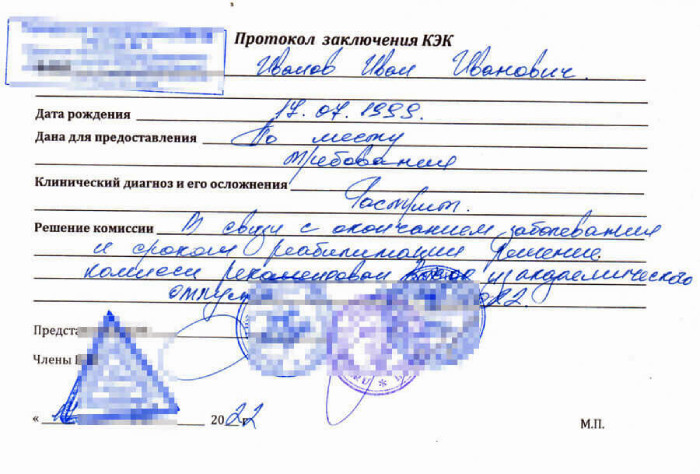 Протокол заключения КЭК
Иванов Иван Иванович.
Дата рождения 17.07.1999.
Дана для предоставления По месту
требования
Клинический диагноз и его осложнения
Гастрит.
Решение комиссии В связи с окончанием заболевания
и сроком реабилитации Решение
комисси рекомендован академического
Предста
Члены
« 2022 г
М.П.